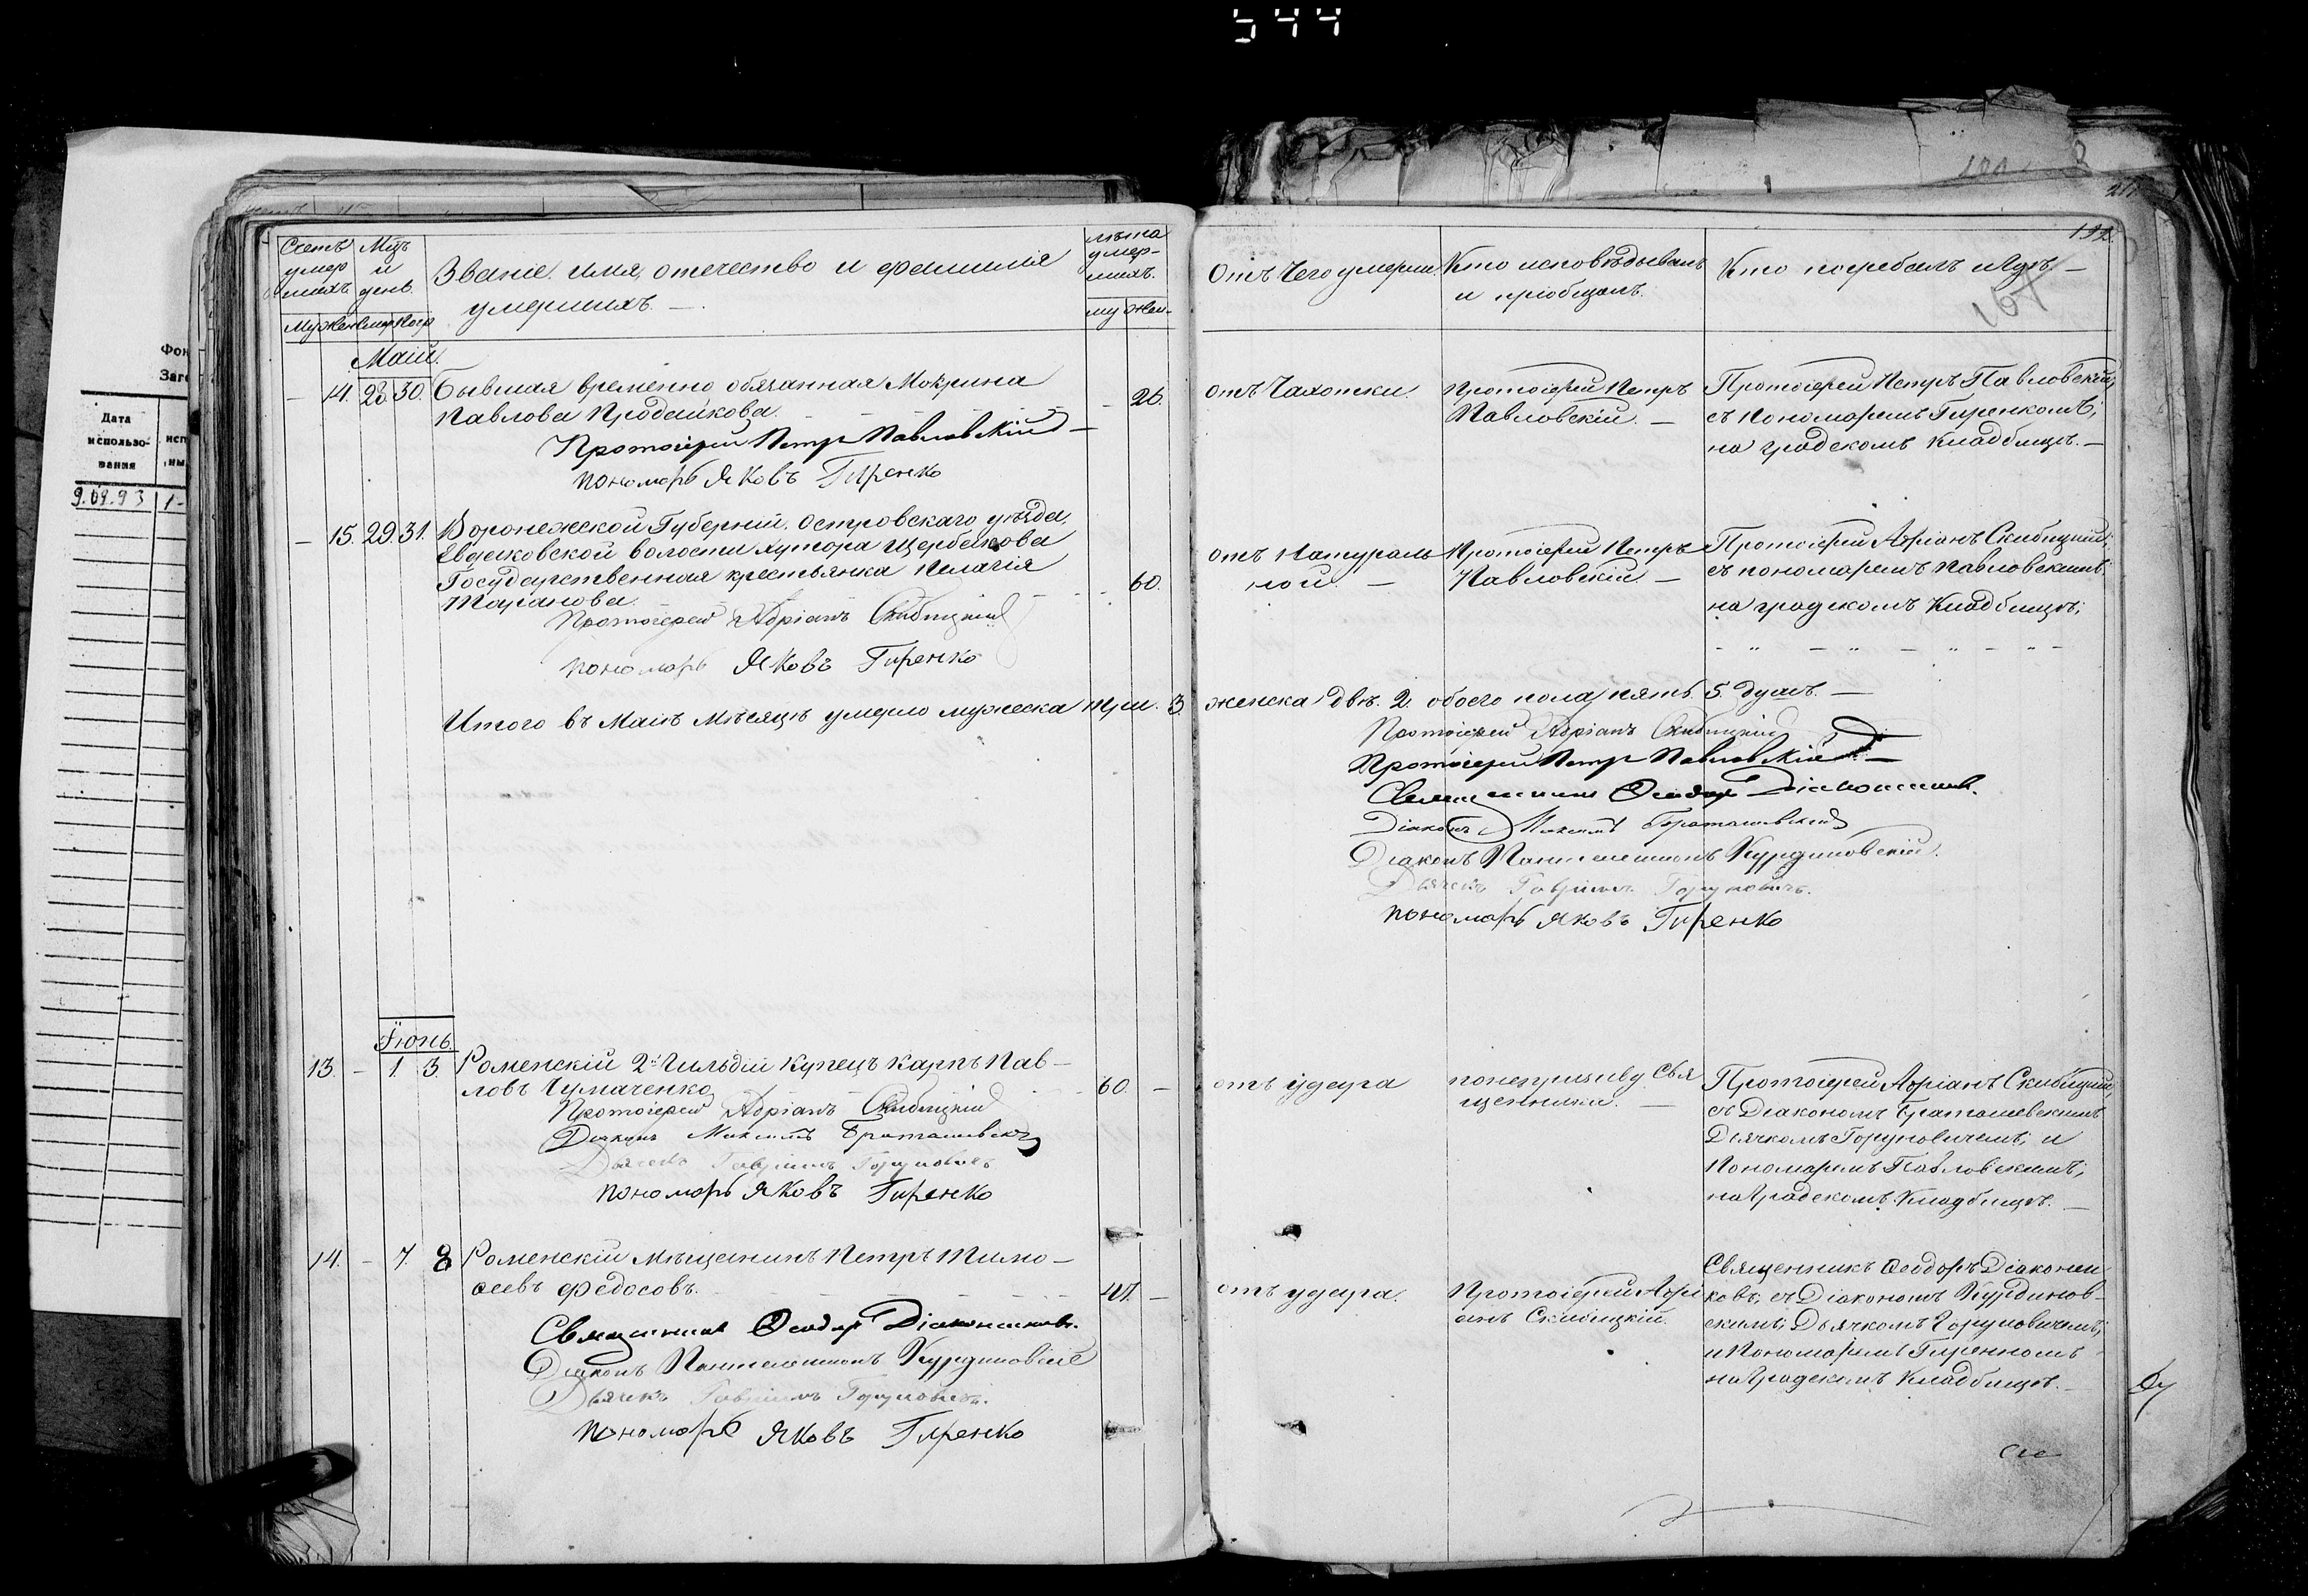 544
Фон
Заго
Дата
использо-
вания
исп
ны
9.09.93 1-
Счетъ
умер
шихъ
Мцъ
и
день.
Званіе, имя, отечество и фамилія
умершихъ. —
лѣта
умер-
шихъ.
Му Жен Умер Погр
му Жен.
Маій.
— 14. 28. 30. Бывшая временно обязанная Мокрина
Павлова Продайкова. — 26.
Протоіерей Петръ Павловскій —
пономарь Яковъ Гиренко
— 15. 29. 31. Воронежской Губерніи, Островскаго уѣзда,
Евдаковской волости хутора Щербакова
Государственная крестьянка Пелагія
Таранова. 60.
Протоіерей Адріанъ Скибицкій
пономарь Яковъ Гиренко
Итого въ Маіѣ Мѣсяцѣ умерло мужеска три. 3.
Іюнь.
13. — 1. 3. Роменскій 2й Гильдіи Купецъ Карпъ Пав-
ловъ Чумаченко 60. —
Протоіерей Адріанъ Скибицкій
Діяконъ Максимъ Браташевскій
Дьячекъ Гавріилъ Горуновичъ
пономарь Яковъ Гиренко
14. — 7. 8 Роменскій Мѣщанинъ Петръ Тимо-
ѳеевъ Федосовъ. 47. —
Священникъ Ѳеодоръ Діаконенковъ.
Діаконъ Пантелеимонъ Курдиновскій
Дьячекъ Гавріилъ Горуновичъ.
пономарь Яковъ Гиренко
192.
167
Отъ Чего умерли.
Кто исповѣдывалъ
и пріобщалъ.
Кто погребалъ и гдѣ —
отъ Чахотки.
Протоіерей Петръ
Павловскій. —
Протоіерей Петръ Павловскій,
съ Пономаремъ Гиренкомъ;
на градскомъ кладбищѣ. —
отъ Натураль
ной. —
Протоіерей Петръ
Павловскій —
Протоіерей Адріанъ Скибицкій,
съ пономаремъ Павловскимъ,
на градскомъ Кладбищѣ;
женска двѣ. 2. обоего пола пять. 5. душъ. —
Протоіерей Адріанъ Скибицкій
Протоіерей Петръ Павловскій —
Священникъ Ѳеодоръ Діаконенковъ.
Діаконъ Максимъ Браташевскій
Діаконъ Пантелеимонъ Курдиновскій.
Дьячекъ Гавріилъ Горуновичъ.
пономарь Яковъ Гиренко
отъ удара
щенника. —
Протоіерей Адріанъ Скибицкій,
съ Діакономъ Браташевскимъ
Дьячкомъ Горуновичемъ; и
Пономаремъ Павловскимъ;
на Градскомъ Кладбищѣ. —
отъ удара.
Протоіерей Адрі
анъ Скибицкій.
Священникъ Ѳеодоръ Діаконен
ковъ; съ Діакономъ Курдинов-
скимъ; Дьячкомъ Горуновичемъ;
и Пономаремъ Гиренкомъ
на Градскомъ Кладбищѣ. —